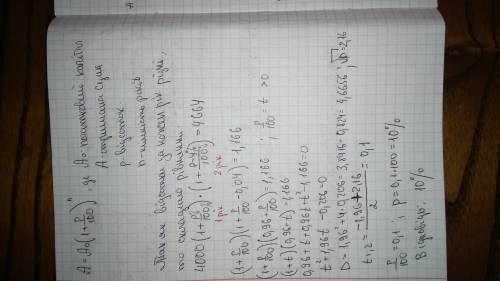 A = A₀(1 + p/100)ⁿ, де A₀ - початковий капітал
A - отримана сума
p - відсоток
n - кількість років
Так як відсотки за кожен рік різні,
то складаємо рівняння
4000(1 + p/100) · (1 + (p-4)/100) = 4664
1 рік 2 рік
(1 + p/100)(1 + p/100 - 0,04) = 1,166
(1 + p/100)(0,96 + p/100) = 1,166 ; p/100 = t >0
(1+t)(0,96+t) = 1,166
0,96 + t + 0,96t + t² - 1,166 = 0
t² + 1,96t - 0,206 = 0
D = 1,96² + 4·0,206 = 3,8416 + 0,824 = 4,6656 ; √D = 2,16
t₁,₂ = (-1,96 + 2,16)/2 = 0,1
p/100 = 0,1 ; p = 0,1·100 = 10%
Відповідь: 10%